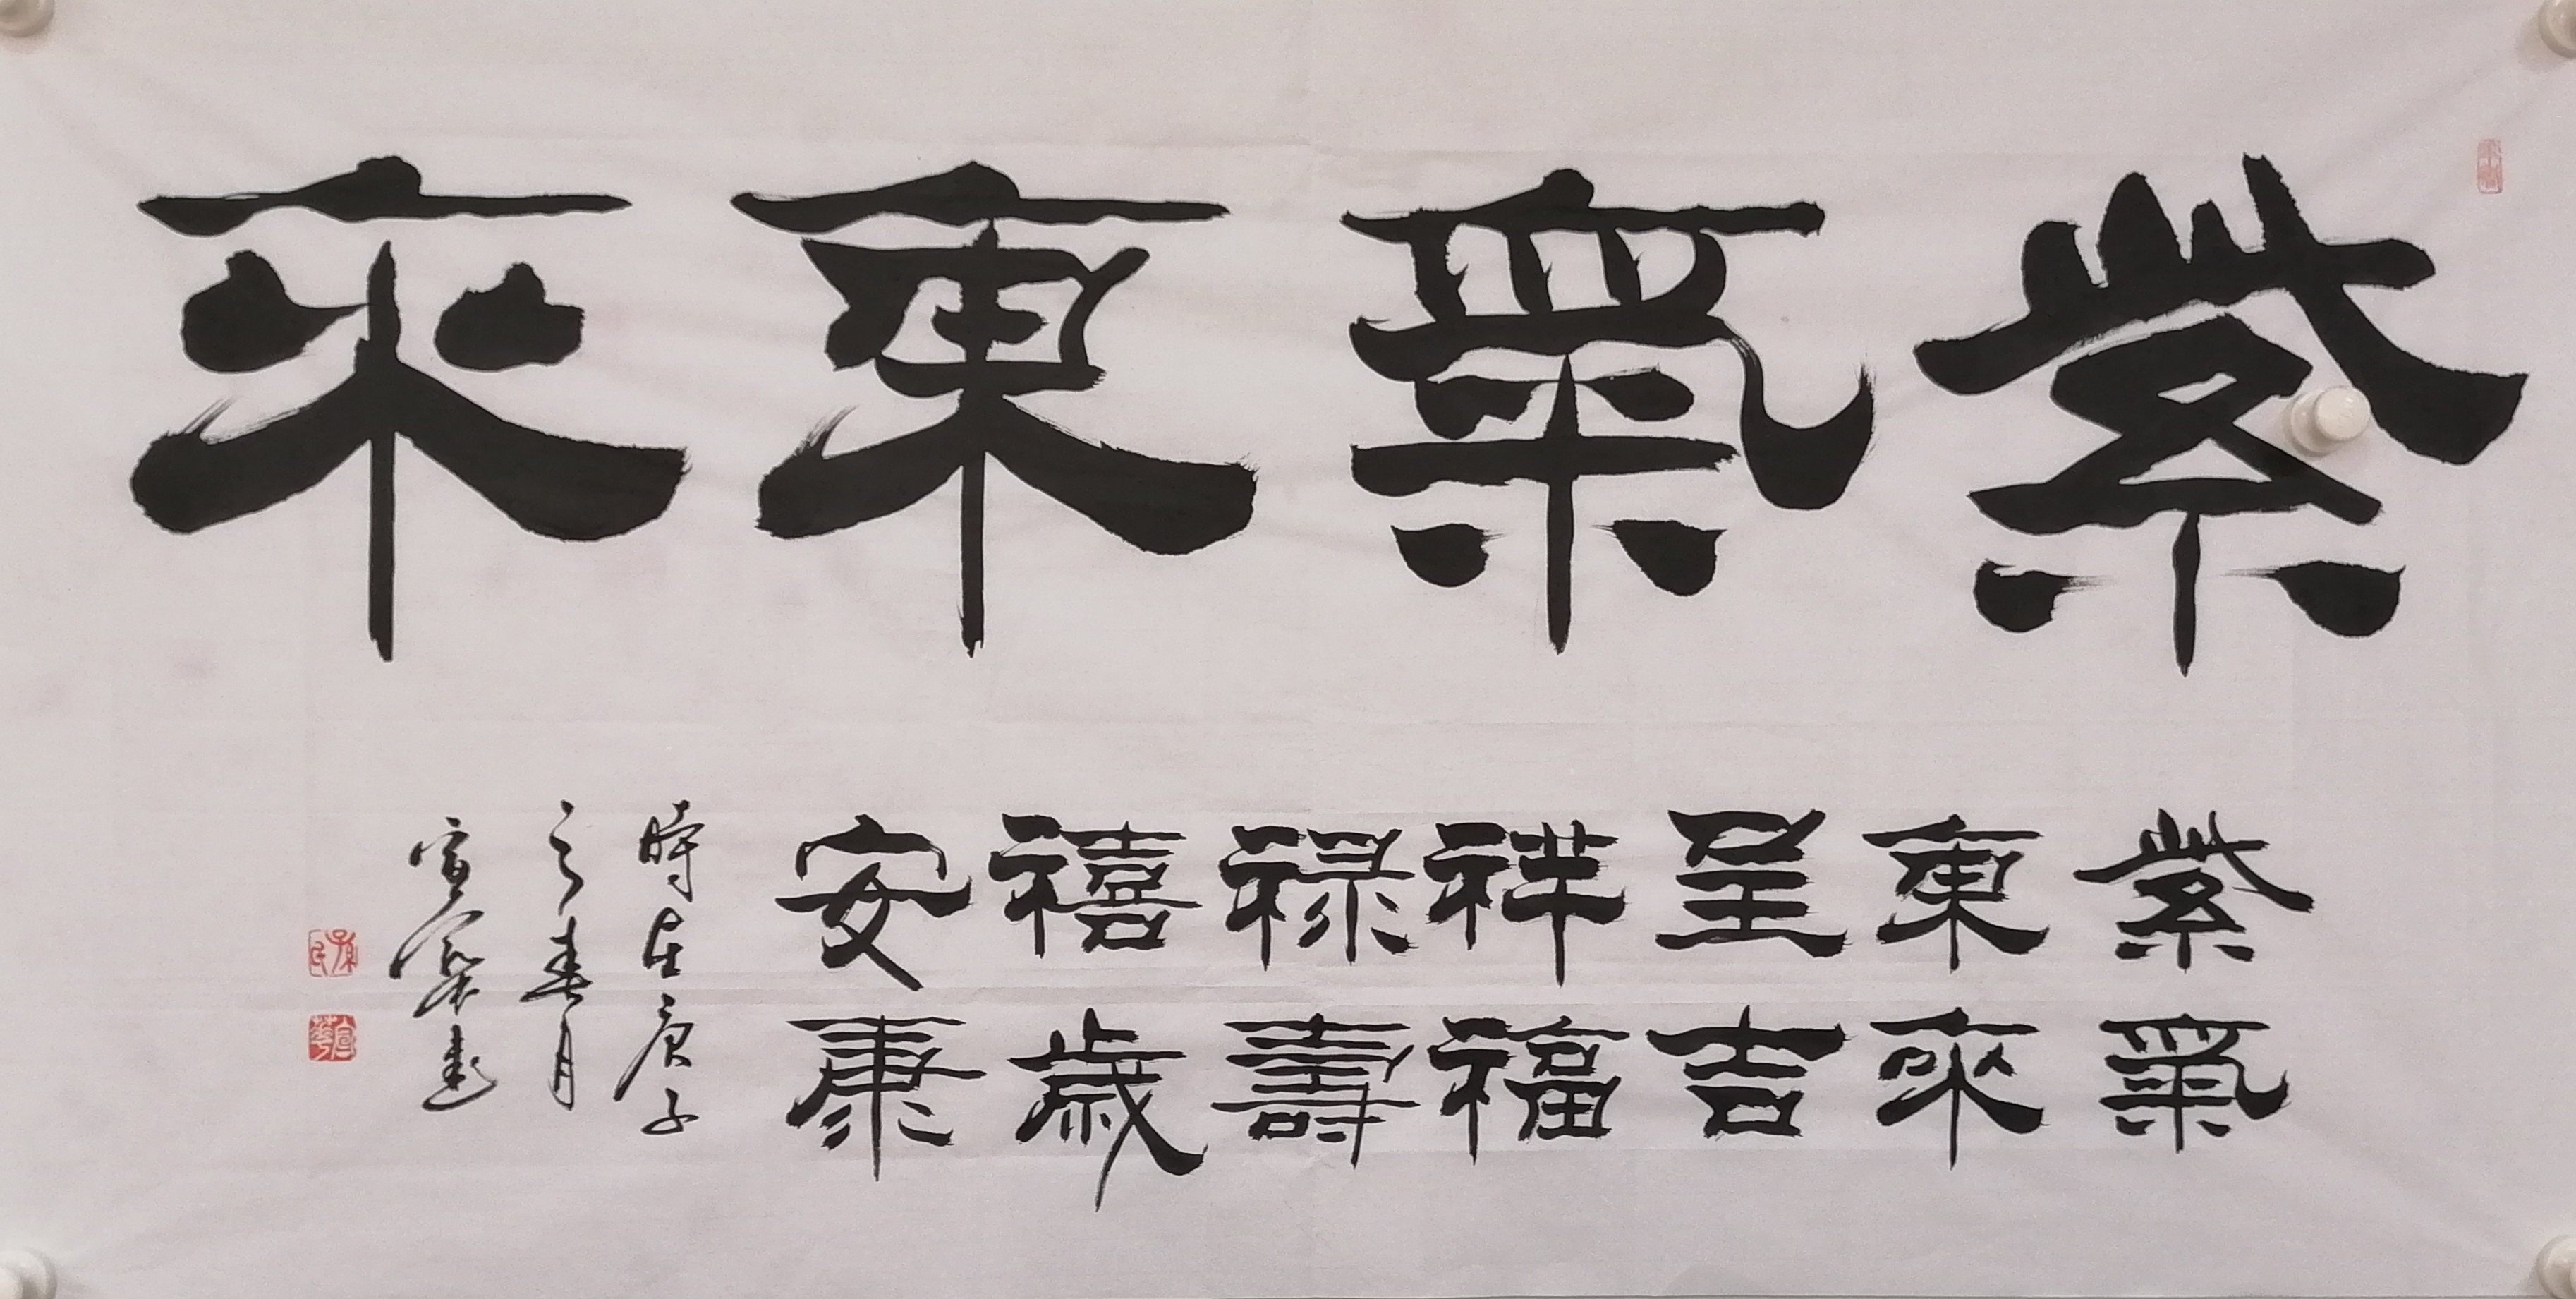 紫氣東來
紫氣
東來
呈吉
祥福
禄壽
禧歲
安康
時在庚子
之春月
宣
孫民
宣華